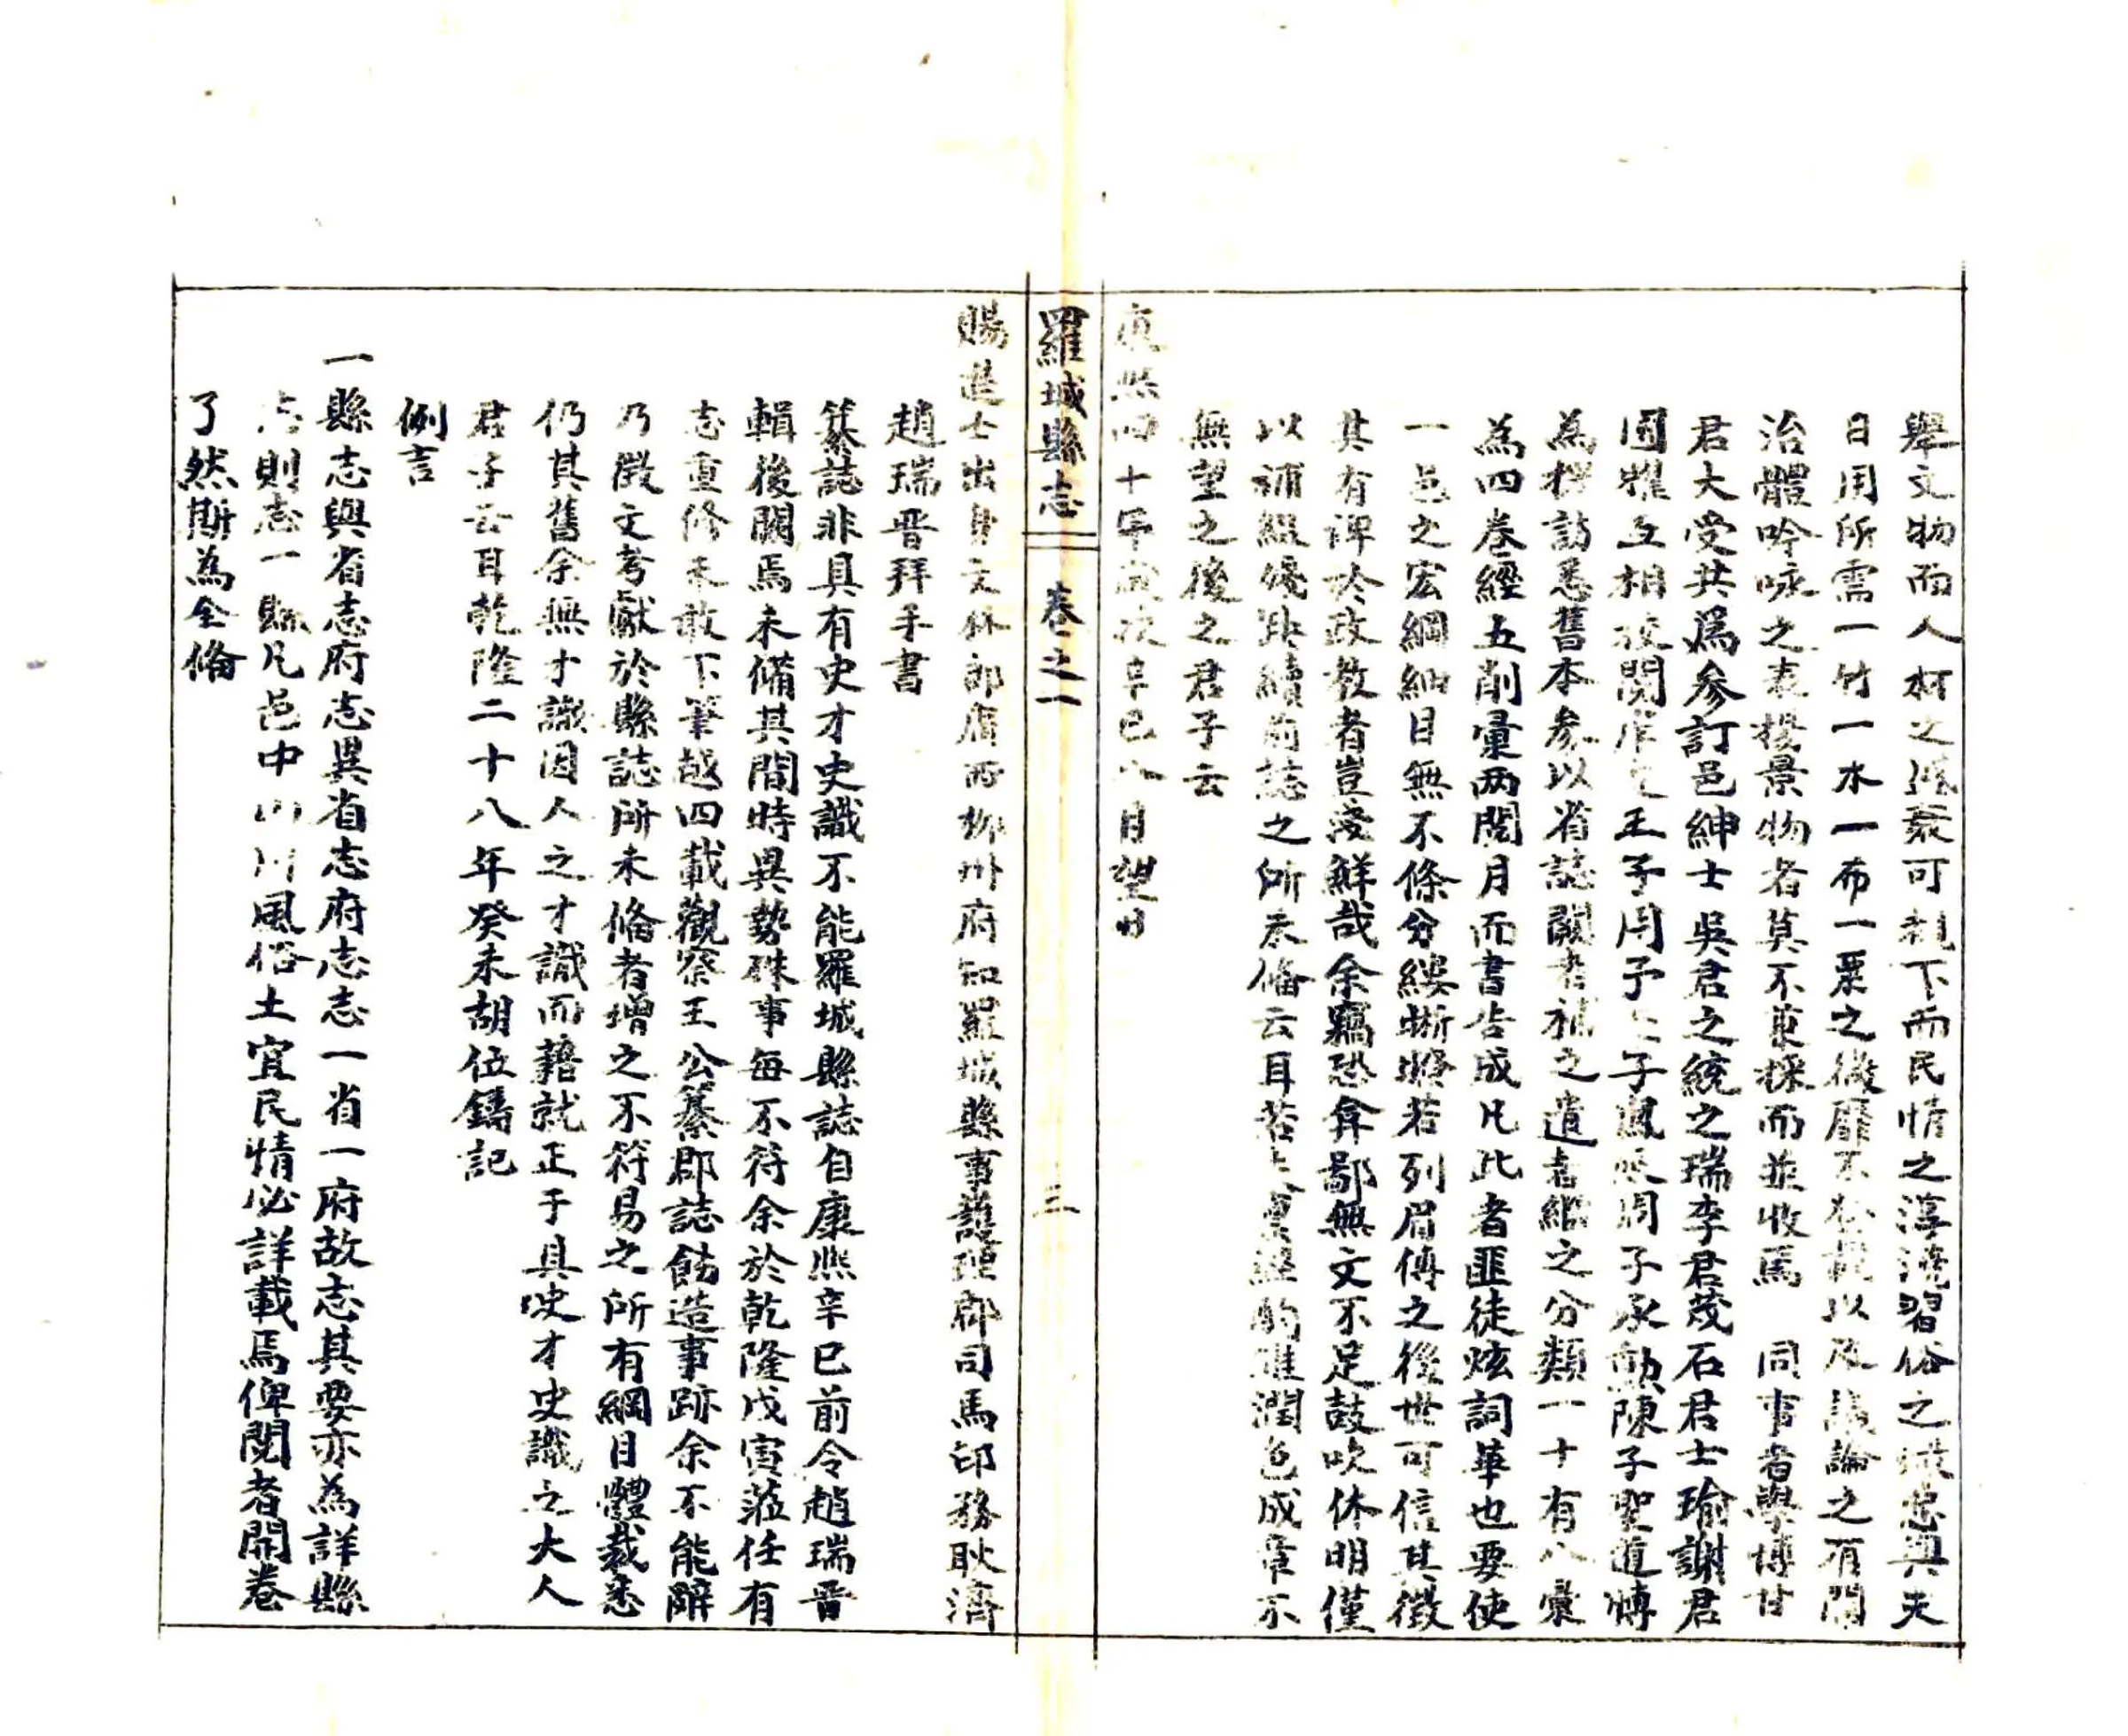 舉文物而人材之盛衰可觀下而民情之淳澆習俗之媸忠與夫
日用所需一竹一木一布一粟之微靡不登載以及議論之有關
治體吟咏之表揚景物者莫不兼採而並收焉 同事者學博甘
君大受共爲參訂邑紳士吳君之統之瑞李君茂石君士瑜謝君
國耀互相校閱 王子周予 子鳳 周子承勳陳子聖道慱
為採訪悉舊本參以省誌闕者補之遺者綴之分類一十有八彙
為四卷經五削彙两閱月而書告成凡此者匪徒炫詞華也要使
一邑之宏綱細目無不條分縷晰瞭若列眉傳之後世可信其徵
其有裨於政教者豈淺鮮哉余竊恐弇鄙無文不足鼓吹休明僅
以補綴殘缺續前誌之所未俻云耳若 潤色成章不
無望之後之君子云
康熙四十年歲次辛巳八月望日
羅城縣志 卷之一 三
賜進士出身文林郎廣西柳州府知羅城縣事護理郡司馬印務耿濟
趙瑞晋拜手書
纂誌非具有史才史識不能羅城縣誌自康熙辛巳前令趙瑞晋
輯後闕焉未備其間時異勢殊事每不符余於乾隆戊寅蒞任有
志重修未敢下筆越四載觀察王公纂郡誌飭造事跡余不能辭
乃徵文考獻於縣誌所未俻者增之不符易之所有綱目體裁悉
仍其舊余無才識因人之才識而藉就正于具史才史識之大人
君子云耳乾隆二十八年癸未胡位鑄記
例言
一縣志與省志府志異省志府志志一省一府故志其要亦為詳縣
志則志一縣凡邑中山川風俗土宜民情必詳載焉俾閱者開卷
了然斯為全俻